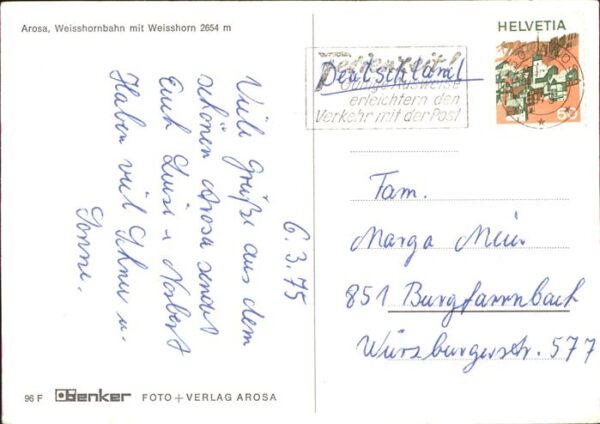 Arosa, Weisshornbahn mit Weisshorn 2654 m
HELVETIA
60
Deutschland
Gültige Ausweise
erleichtern den
Verkehr mit der Post
6.3.75
Viele Grüße aus dem
schönen Arosa sendet
Euch Luise u Norbert
Haben viel Schnee u.
Sonne.
Fam.
Marga
851 Burgfarrnbach
Würzburgerstr. 577
96 F Benker FOTO + VERLAG AROSA